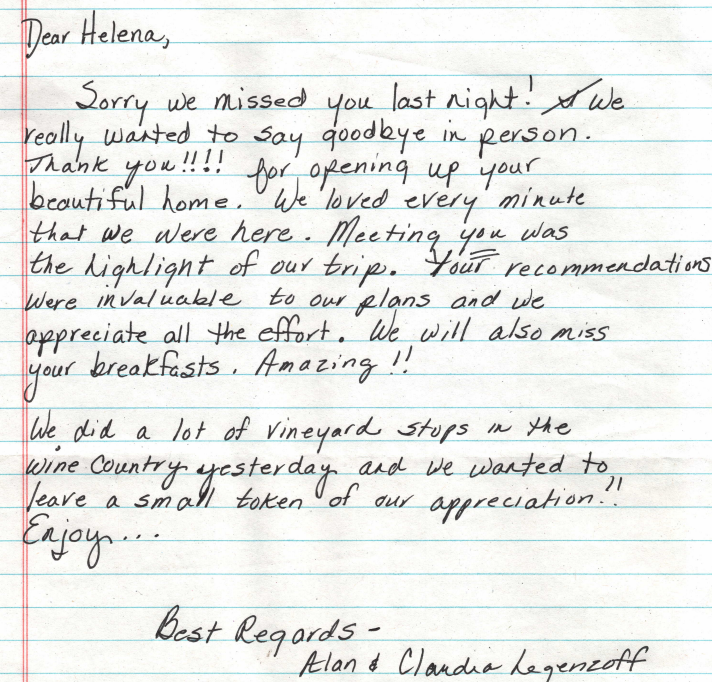 Dear Helena,
Sorry we missed you last night! We
really wanted to say goodbye in person.
Thank you!!!! for opening up your
beautiful home. We loved every minute
that we were here. Meeting you was
the highlight of our trip. Your recommendations
were invaluable to our plans and we
appreciate all the effort. We will also miss
your breakfasts. Amazing!!
We did a lot of vineyard stops in the
wine Country yesterday and we wanted to
leave a small token of our appreciation!!
Enjoy...
Best Regards -
Alan & Claudia Legenzoff